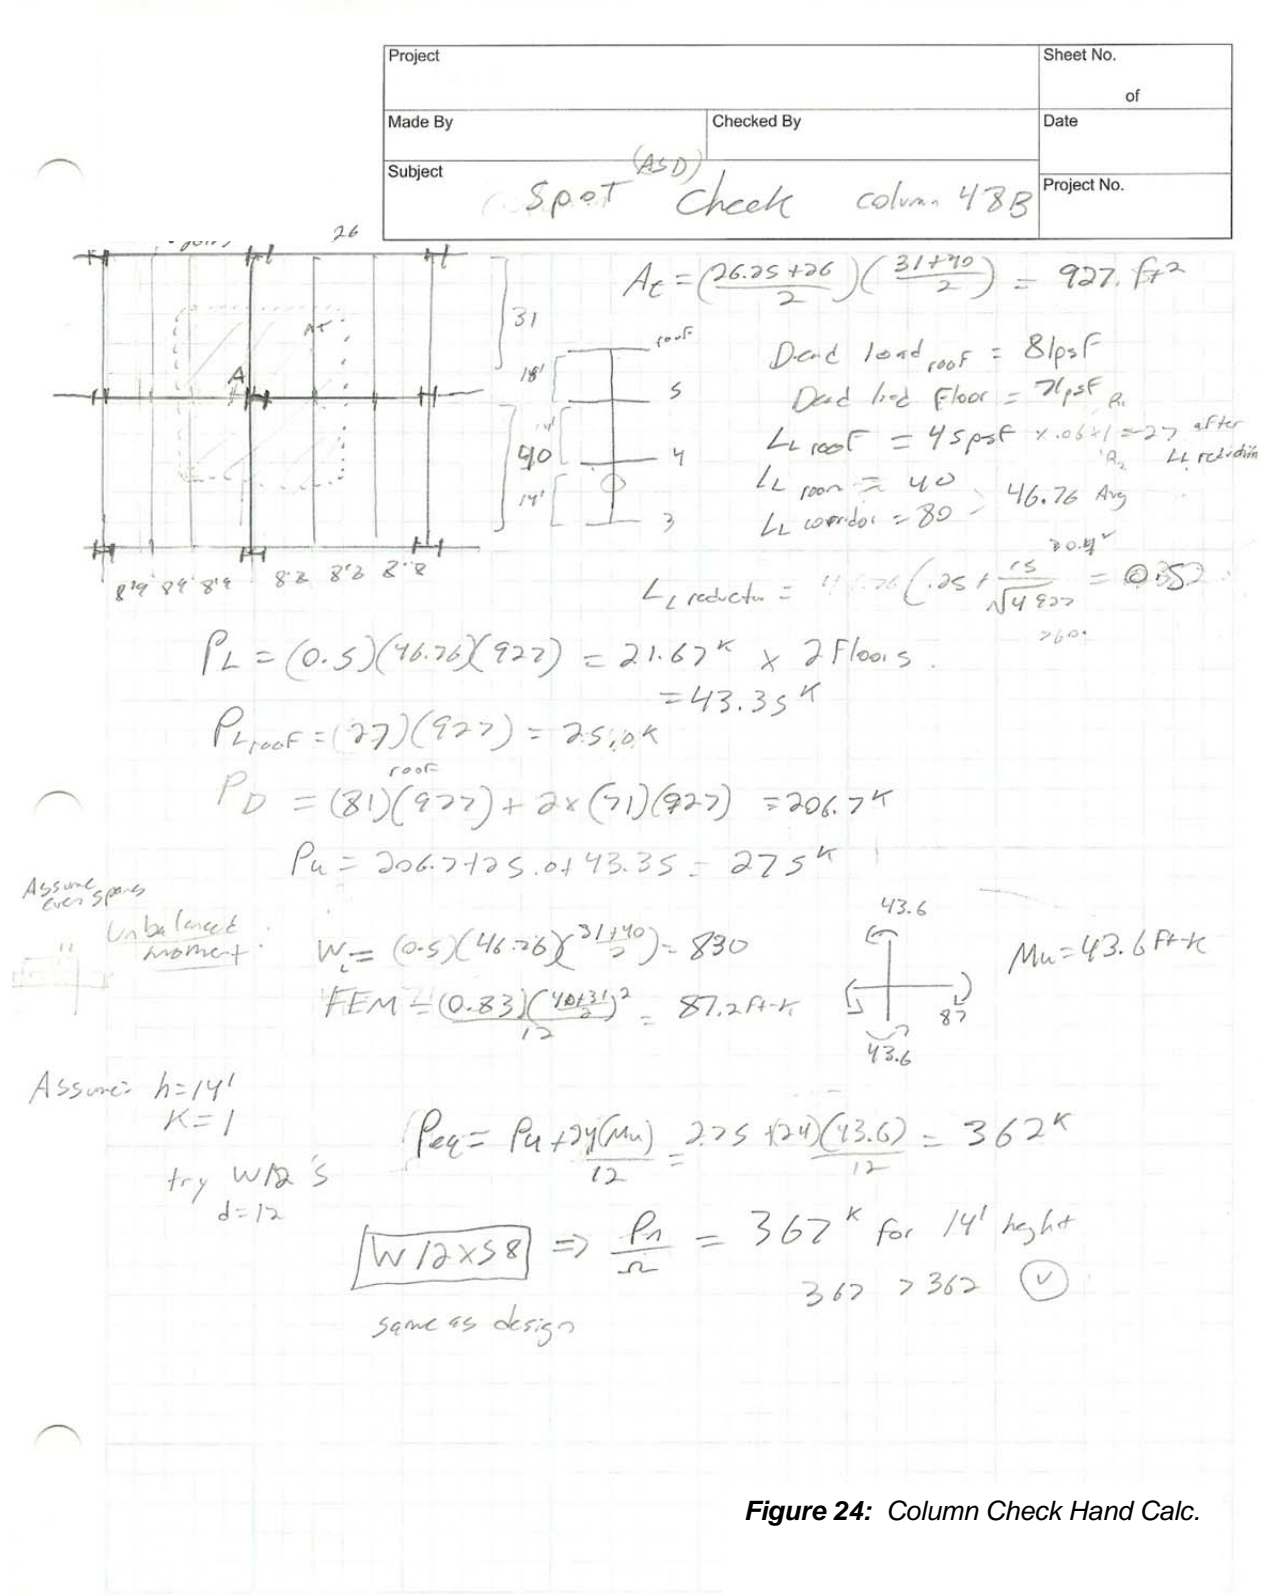 Project
Sheet No.
of
Made By
Checked By
Date
Subject
(ASD)
Spot Check column 48B
Project No.
26
31
40
A
AT
8.9 8.9 8.9 8.8 8.8 8.8
roof
18'
5
14'
4
14'
3
At = (26.25+26/2)(31+40/2) = 927. ft²
Dead load roof = 81psf
Dead load Floor = 71psf
LL roof = 45psf x .06x1 = 27 after LL reduction
R1
R2
LL room = 40
LL corridor = 80
46.76 Avg
≥0.4 ✓
LL reduction = 46.76 (.25 + 15/√4 927 = 0.52
>60.
PL = (0.5)(46.76)(927) = 21.67ᴷ x 2 Floors.
= 43.35ᴷ
PL roof = (27)(927) = 25.0K
roof
PD = (81)(927) + 2x(71)(927) = 206.7ᴷ
Pu = 206.7+25.0+43.35 = 275ᴷ
Assume even spans
Unbalanced moment.
WL = (0.5)(46.76)(31+40/2) = 830
FEM = (0.83)(40+31/2)²/12 = 87.2 ft-k
43.6
87
43.6
Mu = 43.6 Ft-K
Assume: h=14'
K=1
Peq = Pu + 24(Mu)/12 = 275 + (24)(43.6)/12 = 362ᴷ
try W12's
d=12
W12x58 => Pn/Ω = 367ᴷ for 14' height
367 > 362 ✓
same as design
Figure 24: Column Check Hand Calc.